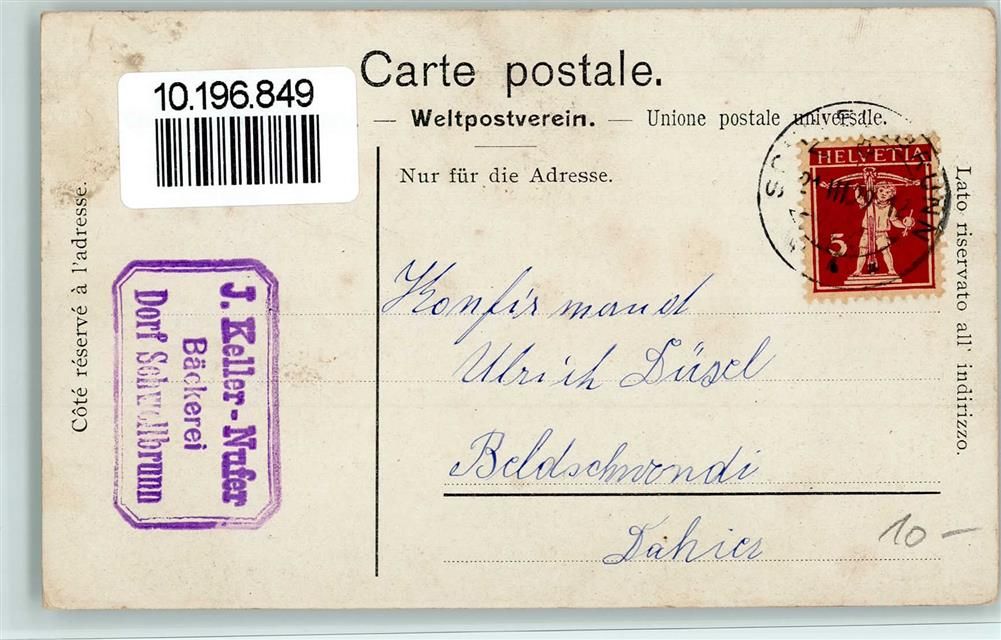 Carte postale.
10.196.849
— Weltpostverein. — Unione postale universale.
Nur für die Adresse.
HELVETIA
5
Côté réservé à l'adresse.
Lato riservato all' indirizzo.
J. Keller-Nufer
Bäckerei
Dorf Schwellbrunn
Konfirmand
Ulrich Düsel
Beldschwendi
Dahier
10–